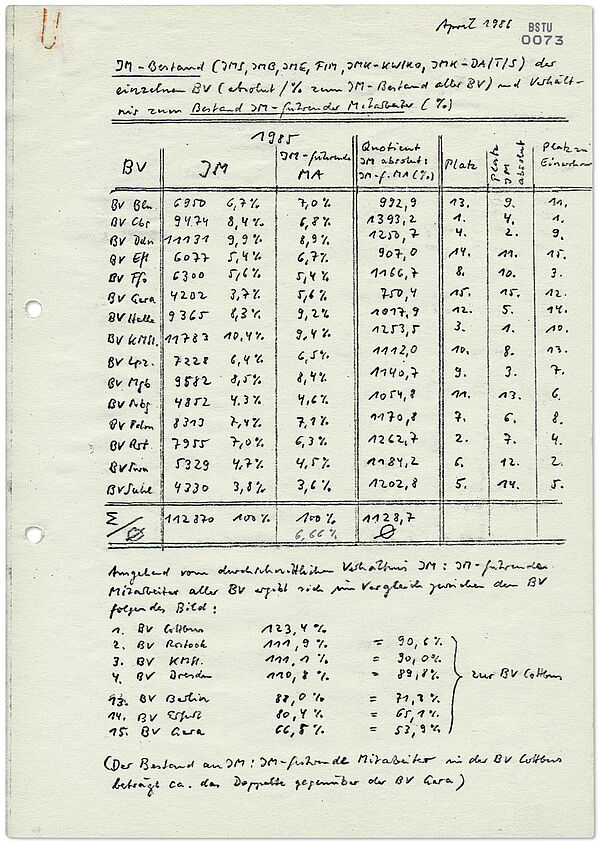 April 1986
BSTU
0073
JM-Bestand (JMS, JMB, JME, FIM, JMK-KW/KO, JMK-DA/T/S) der
einzelnen BV (absolut / % zum JM-Bestand aller BV) und Verhält-
nis zum Bestand JM-führender Mitarbeiter (%)
1985
BV JM JM-führende MA Quotient JM absolut: JM-f. MA (%) Platz Platz JM absolut Platz zu
BV Bln 6950 6,7% 7,0% 992,9 13. 9. 11.
BV Cbs 9474 8,4% 6,8% 1393,2 1. 4. 1.
BV Ddn 11131 9,9% 8,9% 1250,7 4. 2. 9.
BV Eft 6077 5,4% 6,7% 907,0 14. 11. 15.
BV Ffo 6300 5,6% 5,4% 1166,7 8. 10. 3.
BV Gera 4202 3,7% 5,6% 750,4 15. 15. 12.
BV Halle 9365 8,3% 9,2% 1017,9 12. 5. 14.
BV KMSt. 11783 10,4% 9,4% 1253,5 3. 1. 10.
BV Lpz. 7228 6,4% 6,5% 1112,0 10. 8. 13.
BV Mgb 9582 8,5% 8,4% 1140,7 9. 3. 7.
BV Nbg 4852 4,3% 4,6% 1054,8 11. 13. 6.
BV Pdm 8313 7,4% 7,1% 1170,8 7. 6. 8.
BV Rst 7955 7,0% 6,3% 1262,7 2. 7. 4.
BV Swn 5329 4,7% 4,5% 1184,2 6. 12. 2.
BV Suhl 4330 3,8% 3,6% 1202,8 5. 14. 5.
Σ/Ø 112870 100% 100% 1128,7
6,66% Ø
Ausgehend vom durchschnittlichen Verhältnis JM: JM-führende
Mitarbeiter aller BV ergibt sich im Vergleich zwischen den BV
folgendes Bild:
1. BV Cottbus 123,4%
2. BV Rostock 111,9% = 90,6%
3. BV KMSt. 111,1% = 90,0%
4. BV Dresden 110,8% = 89,8%
zur BV Cottbus
13. BV Berlin 88,0% = 71,3%
14. BV Erfurt 80,4% = 65,1%
15. BV Gera 66,5% = 53,9%
(Der Bestand an JM: JM-führende Mitarbeiter in der BV Cottbus
beträgt ca. das Doppelte gegenüber der BV Gera)